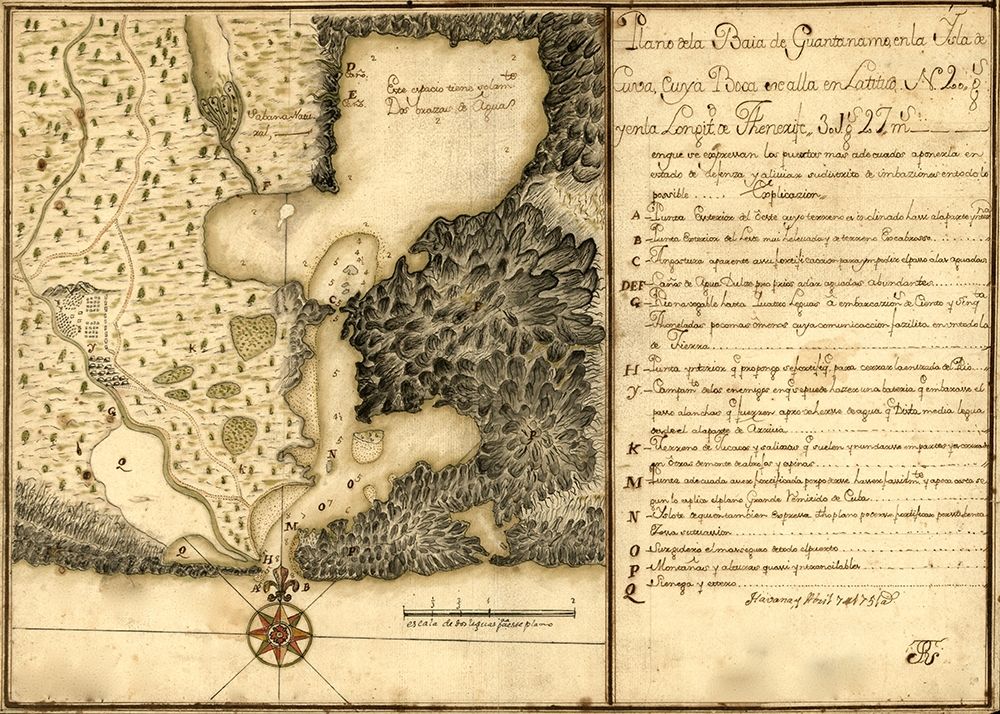 Plano de la Baia de Guantanamo, en la Ysla de
Cuva, Cuya Boca se alla en Latitud N. 20. gs
y en la Longitd. de Thenerife, 301 gs 27 ms
en que se expressan los puestos mas adecuados a ponerla en
estado de defenza y aliviar su distrito de imbaziones en todo lo
possible ..... Explicazion
A - Punta Exterior del Oeste cuyo terreno es inclinado hassia la parte
B - Punta Exterior del Leste mui adecuada y de terreno Escabrosso
C - Angostura aparente a su fortificacion para ympedir el passo a las aguadas
DEF - Caños de Agua Dulze propios a dar aguadas abundantes
G - Rio navegable hasta Quatro Leguas a embarcazions. de Ciento y
Thoneladas poco mas o menos cuya comunicaccion fazilita en todo la
de Tierra
H - Punta ynterior q propongo se fortifiq. para cerrar la entrada del Rio
Y. - Campamto. de los enemigos en q se puede hazer una bateria q embarasse el
passo a lanchas q fuexen a proveherse de agua q Dista media legua
desde el a la parte de Arriva
K - Terreno de y salinas q suelen ynundarse en partes
en otras de monte de abrojos y espinas
M - Punta adecuada a ser fortificada por poderse hasser
gun lo explica el plano Grande Remitido de Cuba
N - Yslote q segun tambien Expressa dho plano puede ser fortificado por su
situassion
O - Surgidero el mas seguro de todo el puerto
P - Montañas y alturas quassi yntrancitables
Q - Sienega y estero
Havana y Abril 7 de 1751 as.
D
Caño.
E
Caño.
Este espacio tiene solamte
Dos brazas de Aguas
Sabana Natu
ral,
F
C
P
K
Y
G
Q
N
O
M
P
P
Q
H
A
B
escala de dos leguas pa. este plano